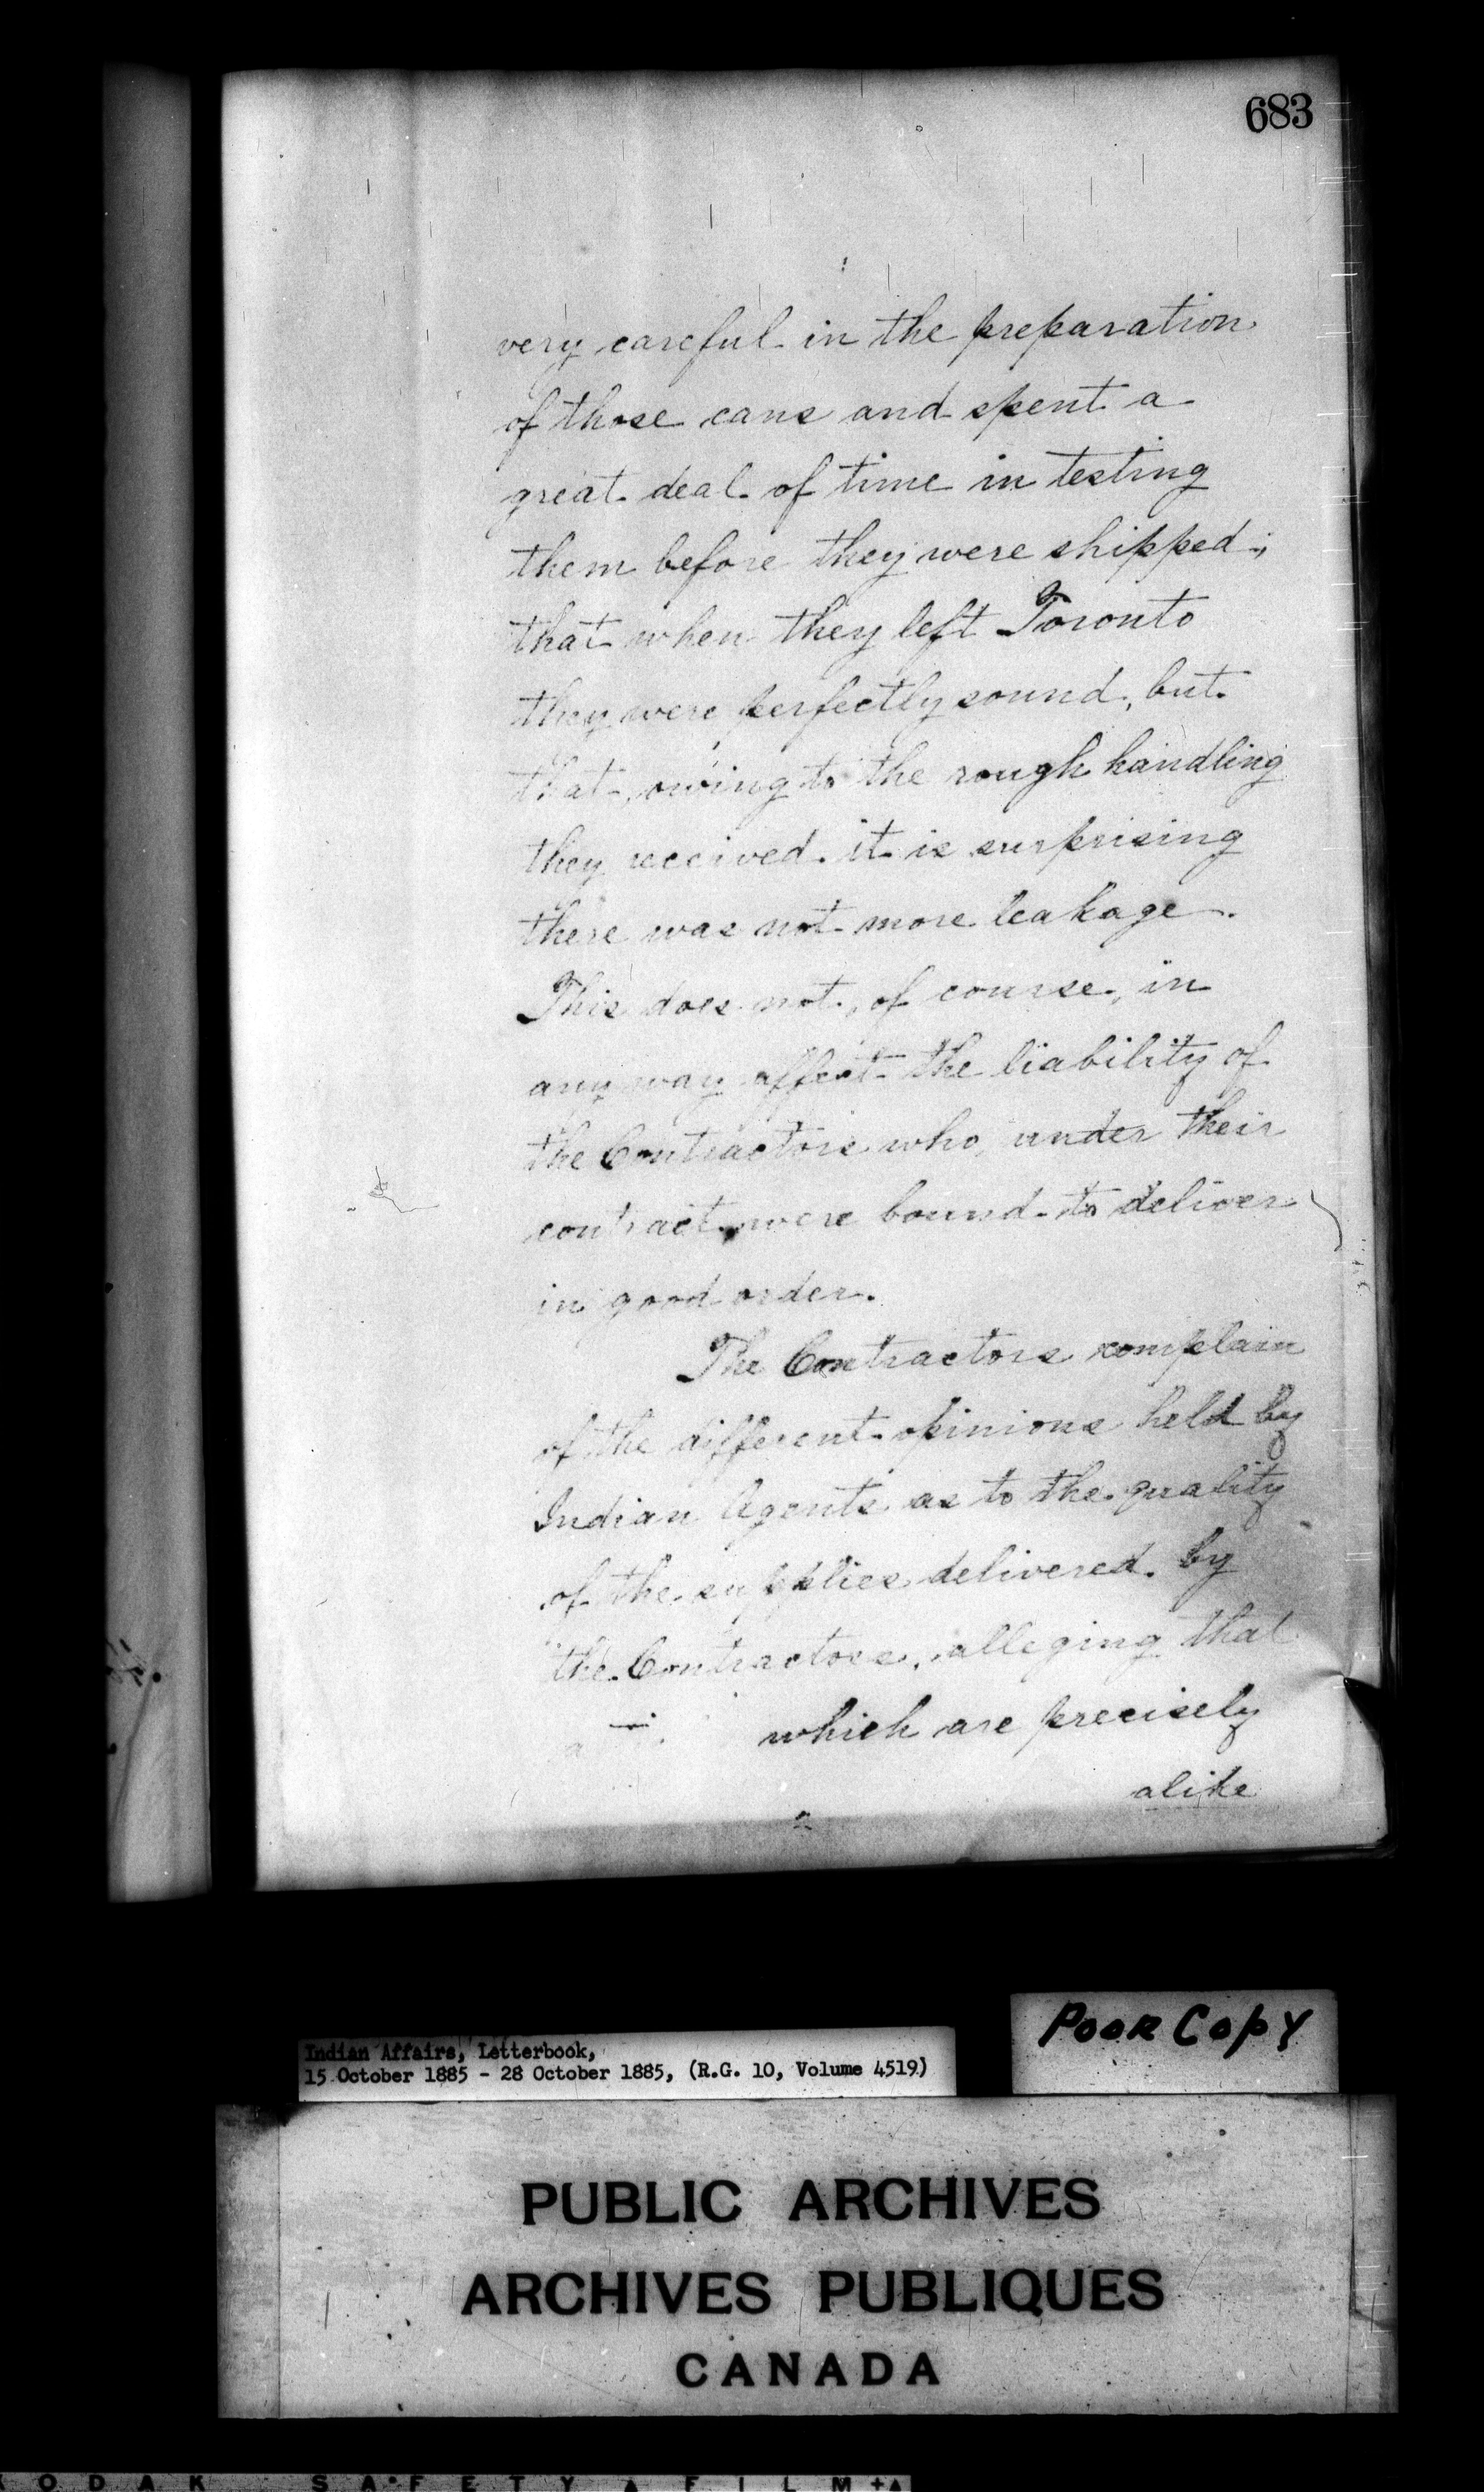 683
very careful in the preparation
of those cans and spent a
great deal of time in testing
them before they were shipped;
that when they left Toronto
they were perfectly sound, but
that, owing to the rough handling
they received it is surprising
there was not more leakage.
This does not, of course, in
any way affect the liability of
the Contractors who, under their
contract, were bound to deliver
in good order.
The Contractors complain
of the different opinions held by
Indian Agents as to the quality
of the supplies delivered by
the Contractors, alleging that
which are precisely
alike
Poor Copy
Indian Affairs, Letterbook,
15 October 1885 - 28 October 1885, (R.G. 10, Volume 4519)
PUBLIC ARCHIVES
ARCHIVES PUBLIQUES
CANADA
KODAK SAFETY FILM